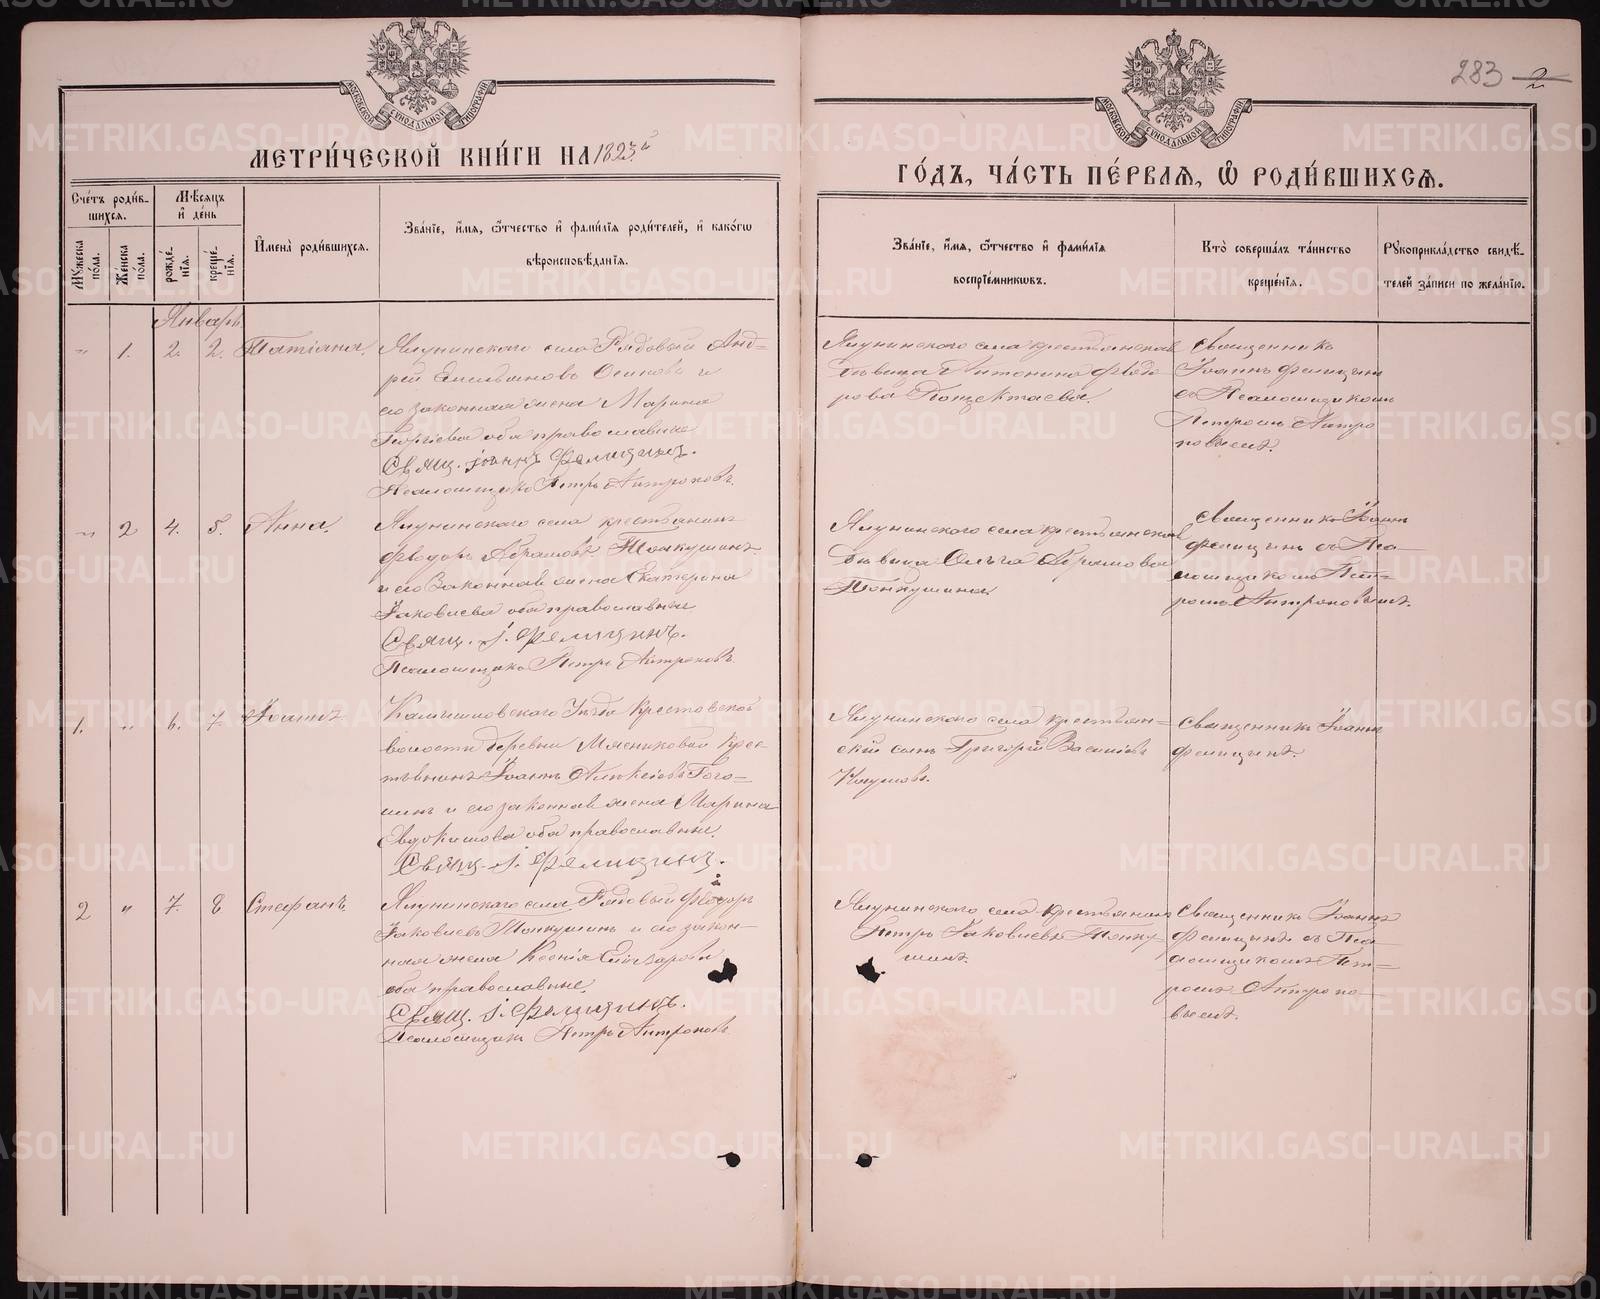 283 2
МЕТРИ́ЧЕСКОЙ КНИ́ГИ НА 1893й
ГО́ДЪ, ЧА́СТЬ ПЕ́РВАЯ, Ѡ РОДИ́ВШИХСЯ.
МОСКОВСКОЙ СѴНОДАЛЬНОЙ ТИПОГРАФІИ
МОСКОВСКОЙ СѴНОДАЛЬНОЙ ТИПОГРАФІИ
Сче́тъ роди́в-
шихся.
Мѣ́сяцъ
и҆ де́нь
Мꙋ́жеска по́ла.
Же́нска по́ла.
рожде́-
нїя.
креще́-
нїя.
И҆мена̀ роди́вшихся.
Зва́нїе, и҆́мя, ѻ҆́тчество и҆ фами́лїя роди́телей, и҆ како́гѡ
вѣроисповѣ́данїя.
Зва́нїе, и҆́мя, ѻ҆́тчество и҆ фами́лїя
воспрїе́мникѡвъ.
Кто̀ соверша́лъ та́инство
креще́нїя.
Рꙋкоприкла́дство свидѣ́-
телей за́писи по жела́нїю.
Январь
" 1. 2. 2. Татіана.
Ялунинскаго села Рядовый Анд-
рей Емельяновъ Осиповъ и
его законная жена Марина
Георгіева оба православные
Свящ. Іоаннъ Фелицинъ.
Псаломщикъ Петръ Антроповъ.
Ялунинскаго села крестьянская
дѣвица Антонина Ѳеодо
рова
Священникъ
Іоаннъ Фелицинъ
съ Псаломщикомъ
Петромъ Антро
повымъ.
" 2 4. 5. Анна.
Ялунинскаго села крестьянинъ
Ѳеодоръ Абрамовъ Топкушинъ
и его законная жена Екатерина
Іаковлева оба православные
Свящ. І. Фелицинъ.
Псаломщикъ Петръ Антроповъ.
Ялунинскаго села крестьянская
дѣвица Ольга Абрамова
Топкушина
Священникъ Іоаннъ
Фелицинъ съ Пса-
ломщикомъ Пет-
ромъ Антроповымъ.
1. " 6. 7. Іоаннъ
Камышловскаго Уѣзда Крестовской
волости деревни Мясниковой Крес-
тьянинъ Іоаннъ Алексіевъ Гого-
линъ и его законная жена Марина
Евдокимова оба православные.
Свящ. І. Фелицинъ.
Ялунинскаго села крестьян-
скій сынъ Григорій Василіевъ
Священникъ Іоаннъ
Фелицинъ.
2 " 7. 8 Стефанъ.
Ялунинскаго села Рядовый Ѳеодоръ
Іаковлевъ Топкушинъ и его закон-
ная жена Ксенія Елизарова
оба православные.
Свящ. І. Фелицинъ.
Псаломщикъ Петръ Антроповъ
Ялунинскаго села крестьянинъ
Петръ Іаковлевъ Топку
шинъ.
Священникъ Іоаннъ
Фелицинъ съ Пса-
ломщикомъ Пет-
ромъ Антропо-
вымъ.
METRIKI.GASO-URAL.RU